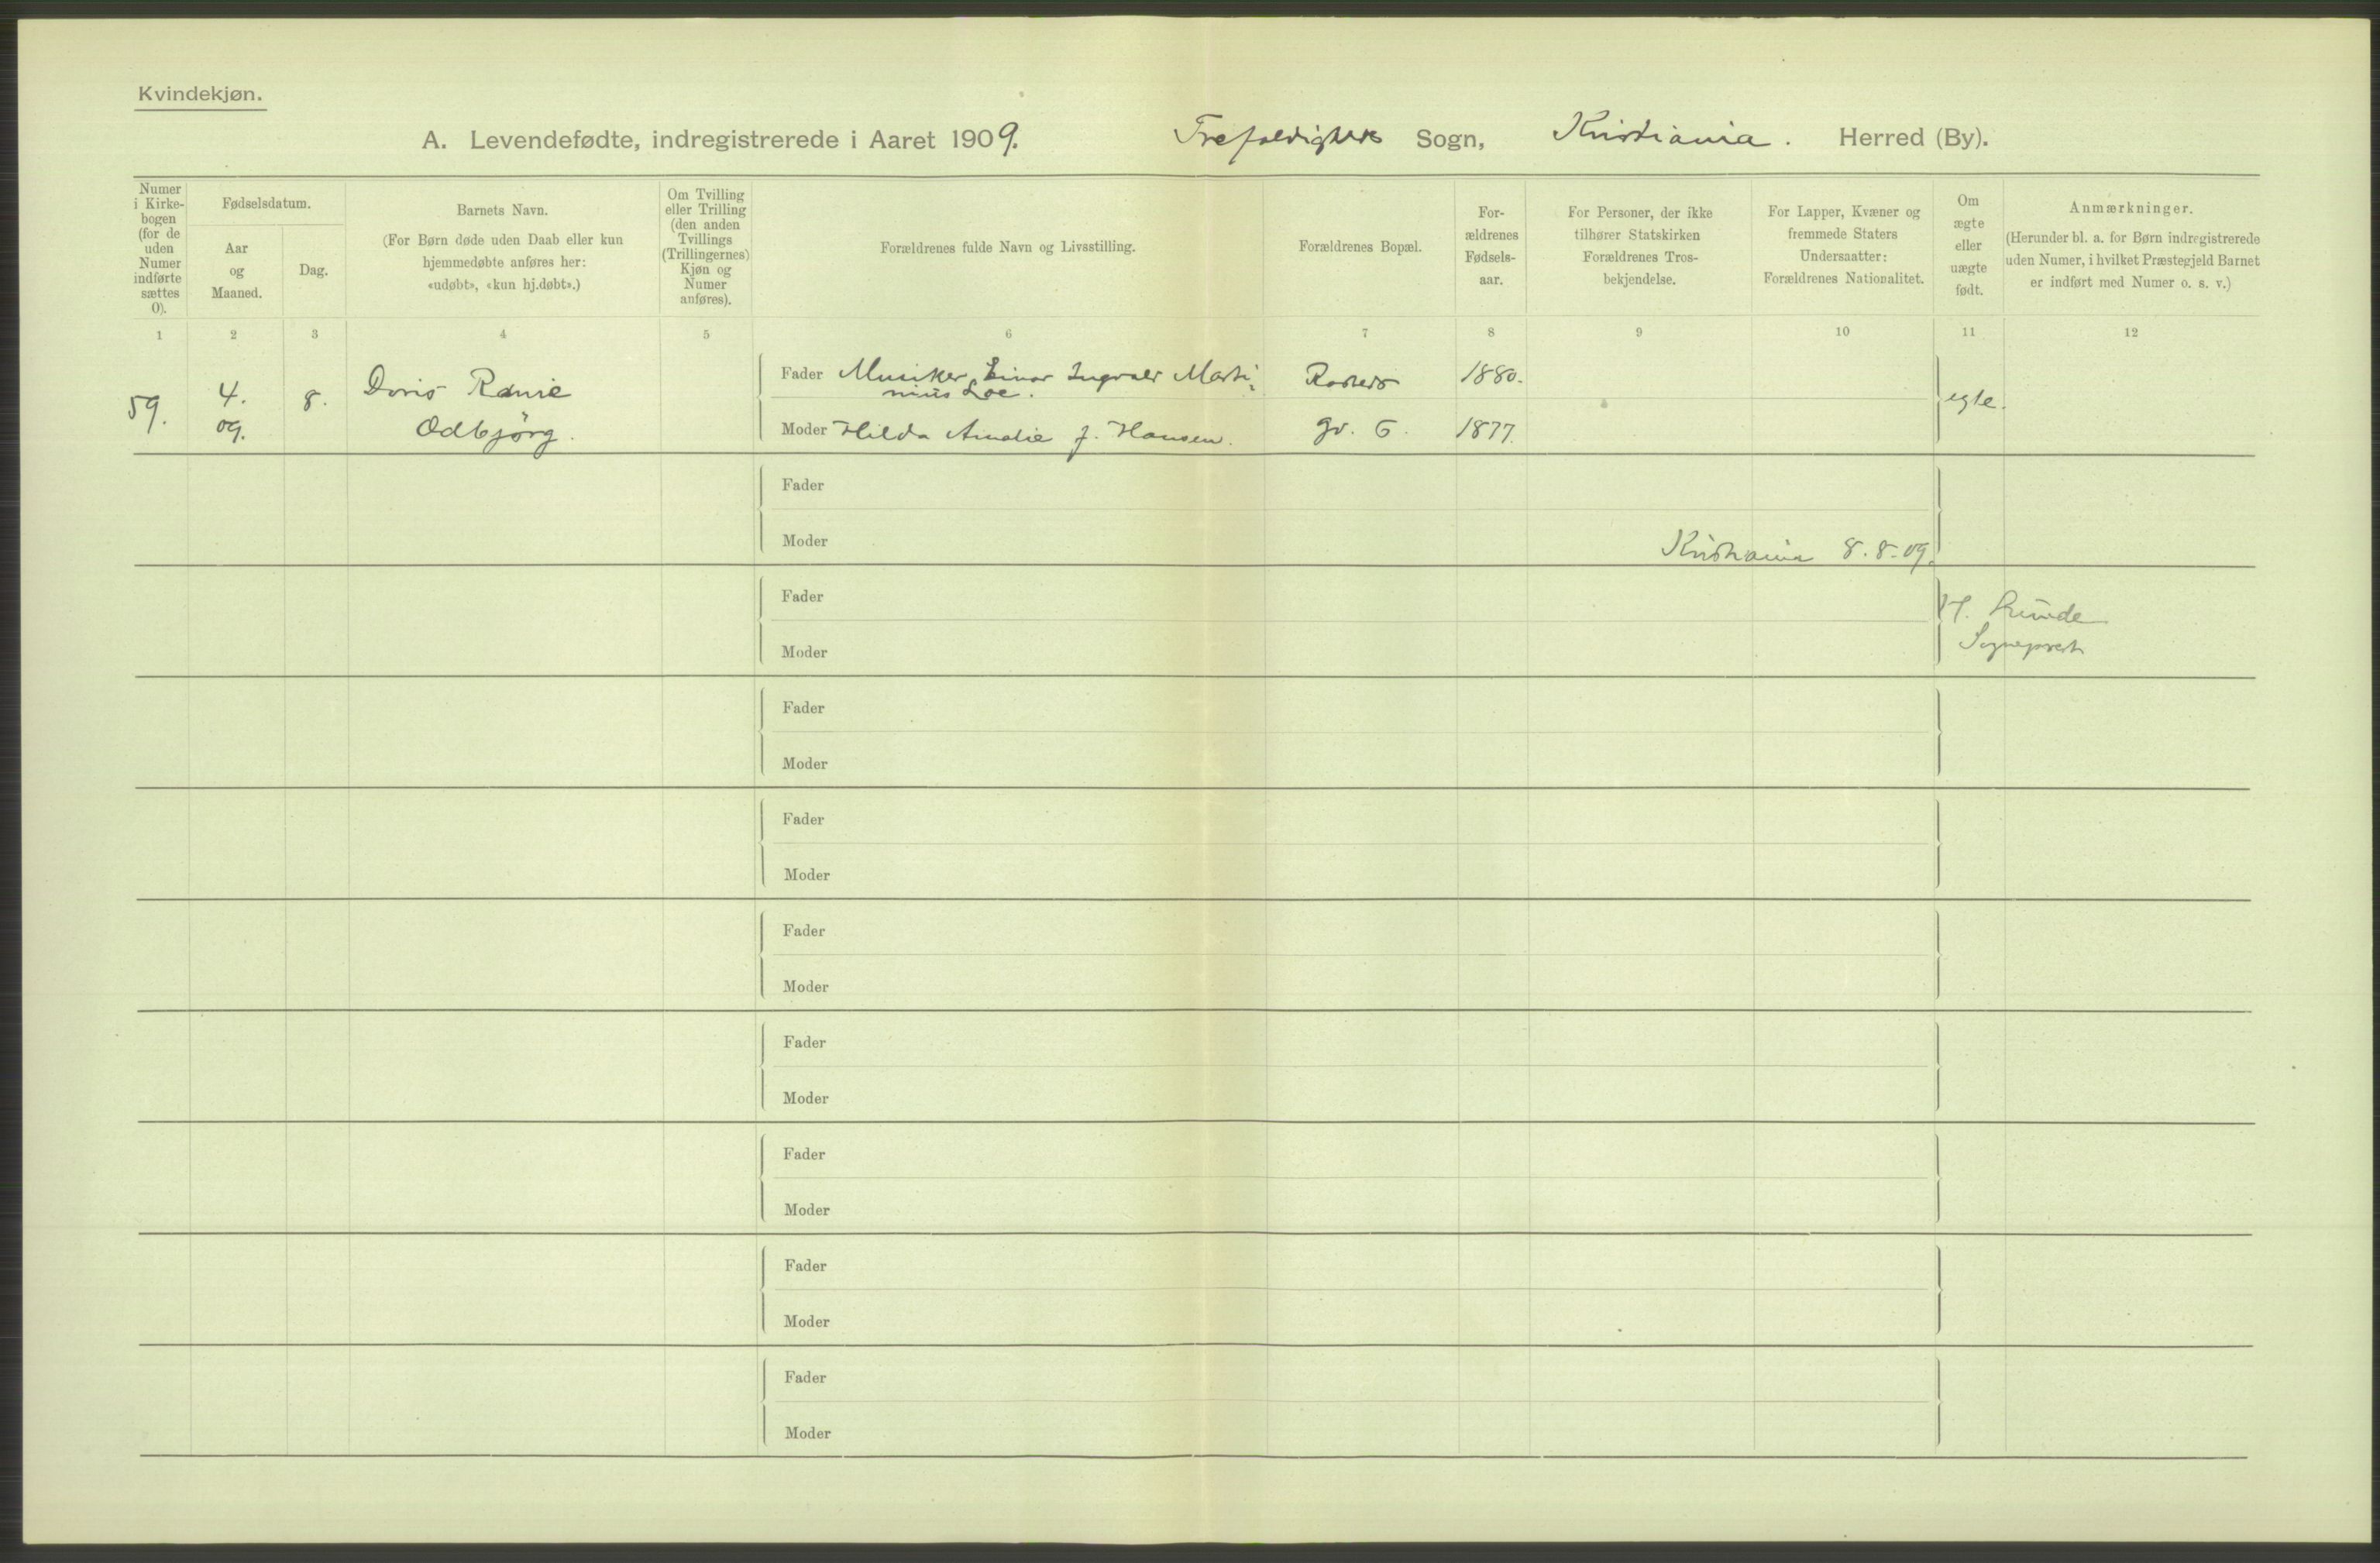 Kvindekjøn.
A. Levendefødte, indregistrerede i Aaret 1909. Trefoldigheds Sogn, Kristiania. Herred (By).
Numer i Kirke-bogen (for de uden Numer indførte sættes 0).
Fødselsdatum.
Aar og Maaned.
Dag.
Barnets Navn.
(For Børn døde uden Daab eller kun
hjemmedøbte anføres her:
«udøbt», «kun hj.døbt».)
Om Tvilling
eller Trilling
(den anden
Tvillings
(Trillingernes)
Kjøn og
Numer
anføres).
Forældrenes fulde Navn og Livsstilling.
Forældrenes Bopæl.
For-
ældrenes
Fødsels-
aar.
For Personer, der ikke
tilhører Statskirken
Forældrenes Tros-
bekjendelse.
For Lapper, Kvæner og
fremmede Staters
Undersaatter:
Forældrenes Nationalitet.
Om
ægte
eller
uægte
født.
Anmærkninger.
(Herunder bl. a. for Børn indregistrerede
uden Numer, i hvilket Præstegjeld Barnet
er indført med Numer o. s. v.)
1 2 3 4 5 6 7 8 9 10 11 12
59. 4. 09. 8.
Doris
Odbjörg.
Fader Musiker Einar Ingvald Marti-
nius Loe. 1880.
Moder Hilda Amalie f. Hansen. gd. 6. 1877.
egte.
Fader
Moder
Kristiania 8.8.09.
Fader
H.
Sogneprest
Moder
Fader
Moder
Fader
Moder
Fader
Moder
Fader
Moder
Fader
Moder
Fader
Moder
Fader
Moder